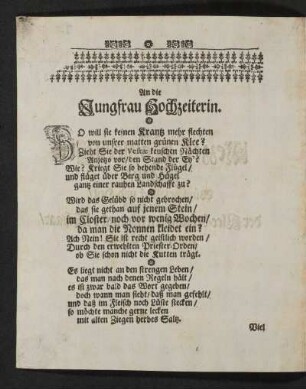 An die
Jungfrau Hochzeiterin.
SO will sie keinen Krantz mehr flechten
von unsrer matten grünen Klee?
Zieht Sie der Vestæ keuschen Nächten
Anjetzo vor/ den Stand der Eh'?
Wie? Kriegt Sie so behende Flügel/
und flüget über Berg und Hügel
gantz einer rauhen Landschafft zu?
Wird das Gelübd so nicht gebrochen/
das sie gethan auf jenem Stein/
im Closter/ noch vor wenig Wochen/
da man die Nonnen kleidet ein?
Ach Nein! Sie ist recht geistlich worden/
Durch den erwehlten Priester-Orden/
ob Sie schon nicht die Kutten trägt.
Es liegt nicht an den strengen Leben/
das man nach denen Regeln hält/
es ist zwar bald das Wort gegeben/
doch wann man sieht/ daß man gefehlt/
und daß im Fleisch noch Lüste stecken/
so möchte manche gerne lecken
mit alten Ziegen herbes Saltz.
Viel